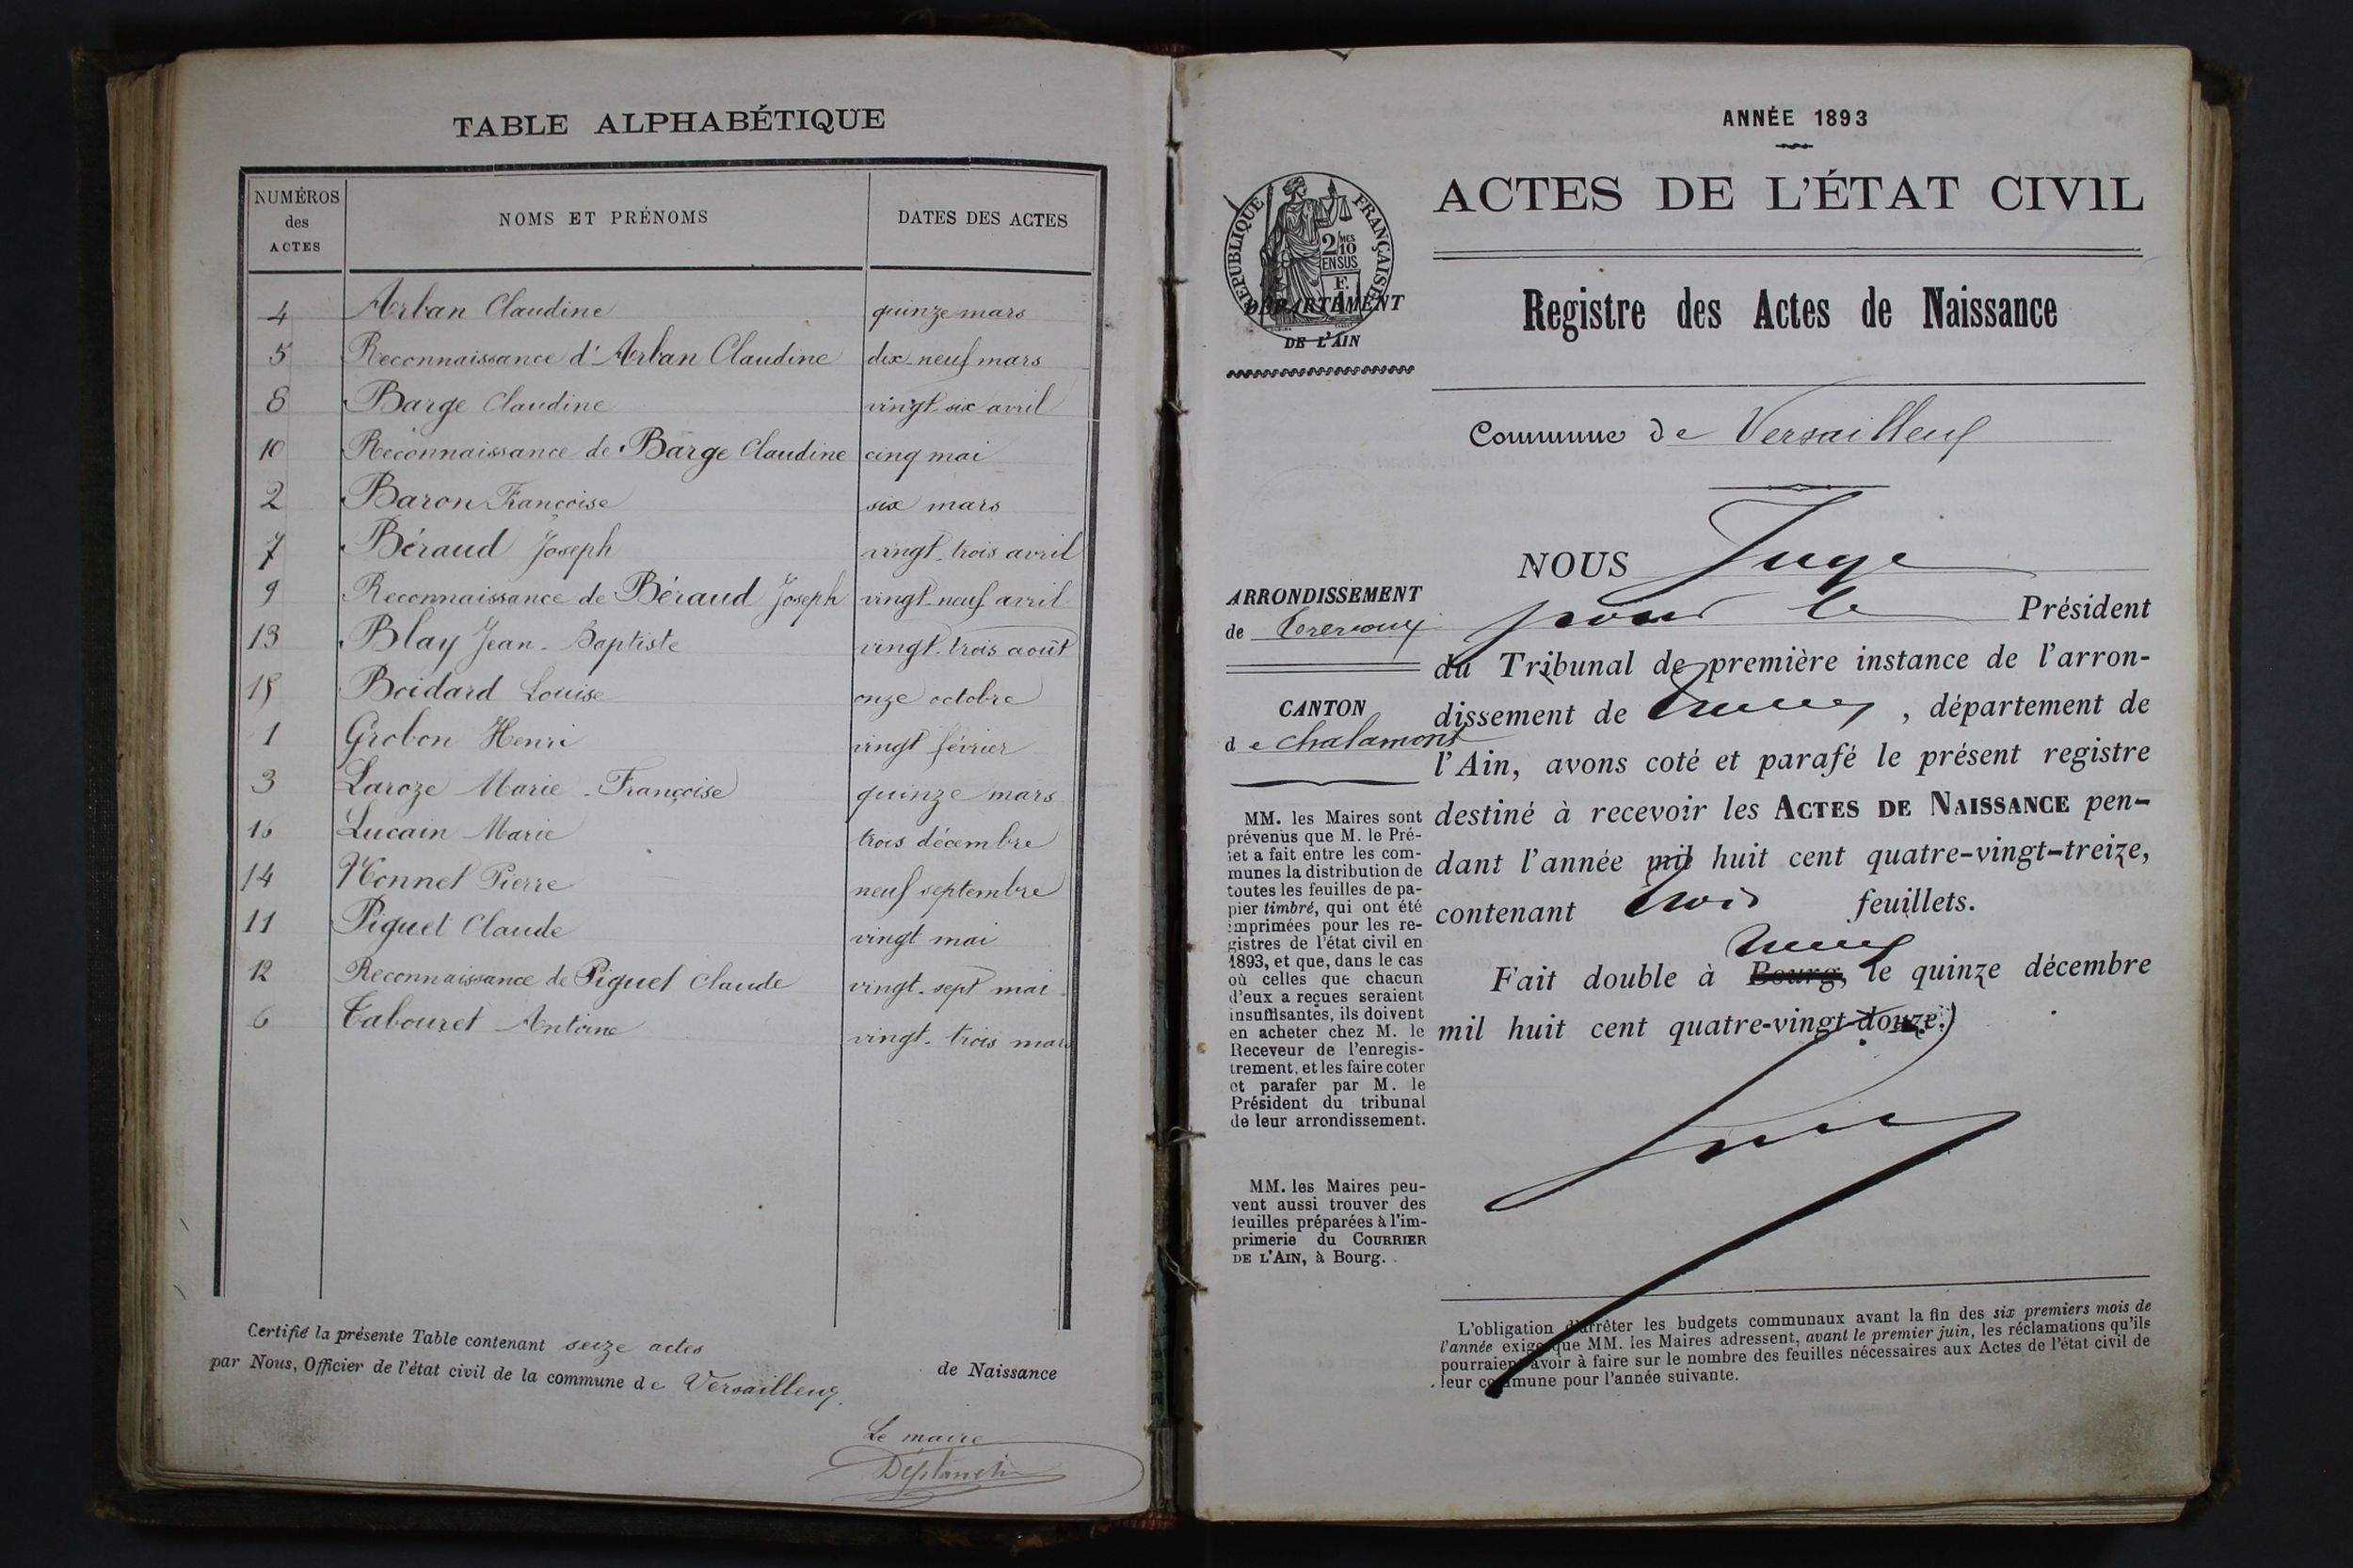 TABLE ALPHABÉTIQUE
NUMÉROS
des
ACTES
NOMS ET PRÉNOMS
DATES DES ACTES
4 Arban Claudine quinze mars
5 Reconnaissance d'Arban Claudine dix-neuf mars
8 Barge Claudine vingt-six avril
10 Reconnaissance de Barge Claudine cinq mai
2 Baron Françoise six mars
7 Béraud Joseph vingt-trois avril
9 Reconnaissance de Béraud Joseph vingt-neuf avril
13 Blay Jean-Baptiste vingt-trois août
15 Boidard Louise onze octobre
1 Grobon Henri vingt février
3 Laroze Marie-Françoise quinze mars
16 Lucain Marie trois décembre
14 Monnet Pierre neuf septembre
11 Piguet Claude vingt mai
12 Reconnaissance de Piguet Claude vingt-sept mai
6 Tabouret Antoine vingt-trois mars
Certifié la présente Table contenant seize actes
de Naissance
par Nous, Officier de l'état civil de la commune de Versailleux.
Le maire
ANNÉE 1893
ACTES DE L'ÉTAT CIVIL
RÉPUBLIQUE FRANÇAISE
2 MES
10
EN SUS
F.
1
DÉPARTEMENT
DE L'AIN
Registre des Actes de Naissance
Commune de Versailleux
NOUS Juge
pour le Président
du Tribunal de première instance de l'arron-
dissement de Trévoux, département de
l'Ain, avons coté et parafé le présent registre
destiné à recevoir les ACTES DE NAISSANCE pen-
dant l'année mil huit cent quatre-vingt-treize,
contenant trois feuillets.
Trévoux
Fait double à Bourg, le quinze décembre
mil huit cent quatre-vingt-douze.
ARRONDISSEMENT
de Trévoux
CANTON
de Chalamont
MM. les Maires sont
prévenus que M. le Pré-
fet a fait entre les com-
munes la distribution de
toutes les feuilles de pa-
pier timbré, qui ont été
imprimées pour les re-
gistres de l'état civil en
1893, et que, dans le cas
où celles que chacun
d'eux a reçues seraient
insuffisantes, ils doivent
en acheter chez M. le
Receveur de l'enregis-
trement, et les faire coter
et parafer par M. le
Président du tribunal
de leur arrondissement.
MM. les Maires peu-
vent aussi trouver des
feuilles préparées à l'im-
primerie du COURRIER
DE L'AIN, à Bourg.
L'obligation d'arrêter les budgets communaux avant la fin des six premiers mois de
l'année exige que MM. les Maires adressent, avant le premier juin, les réclamations qu'ils
pourraient avoir à faire sur le nombre des feuilles nécessaires aux Actes de l'état civil de
leur commune pour l'année suivante.